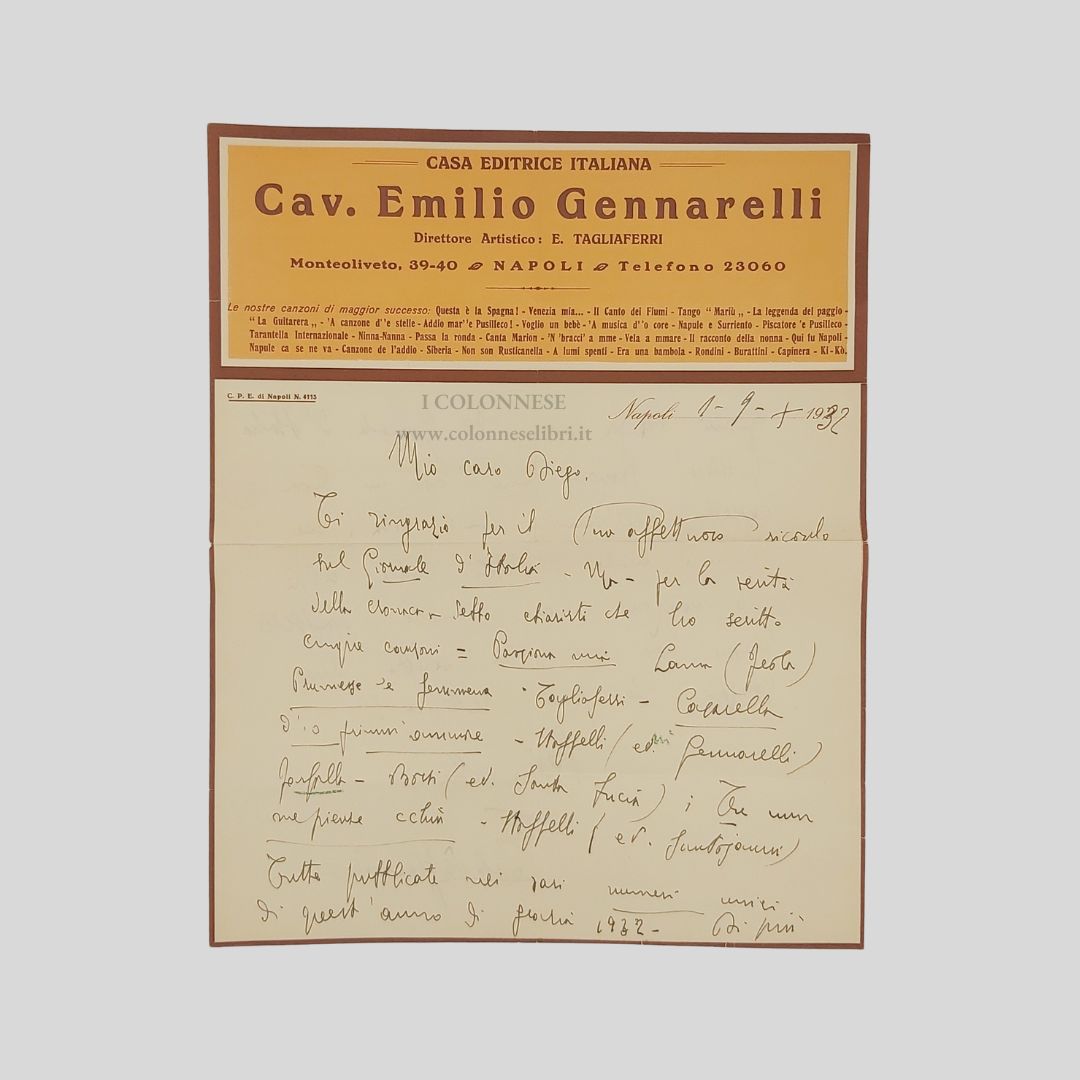 CASA EDITRICE ITALIANA
Cav. Emilio Gennarelli
Direttore Artistico: E. TAGLIAFERRI
Monteoliveto, 39-40 NAPOLI Telefono 23060
Le nostre canzoni di maggior successo: Questa è la Spagna! - Venezia mia... - Il Canto dei Fiumi - Tango “ Mariù „ - La leggenda del paggio -
“ La Guitarera „ - 'A canzone d''e stelle - Addio mar''e Pusilleco! - Voglio un bebè - 'A musica d''o core - Napule e Surriento - Piscatore 'e Pusilleco -
Tarantella Internazionale - Ninna-Nanna - Passa la ronda - Canta Marion - 'N 'bracci' a mme - Vela a mmare - Il racconto della nonna - Qui fu Napoli -
Napule ca se ne va - Canzone de l'addio - Siberia - Non son Rusticanella - A lumi spenti - Era una bambola - Rondini - Burattini - Capinera - Ki-Kò.
C. P. E. di Napoli N. 4113
I COLONNESE
www.colonneselibri.it
Napoli 1 - 9 - X 1932
Mio caro Diego,
Ti ringrazio per il Tuo affettuoso ricordo
sul Giornale d'Italia - Ma - per la verità
della cronaca - che ho scritto
cinque canzoni = Passiona mia Lama
Prumesse 'e femmena Tagliaferri -
d''o primm'ammore - Staffelli (ed. Gennarelli)
(ed. Santa Lucia) ; Tu nun
me pienze cchiù - Staffelli (ed. Santojanni)
Tutte pubblicate nei vari numeri unici
di quest'anno di grazia 1932 - Di più